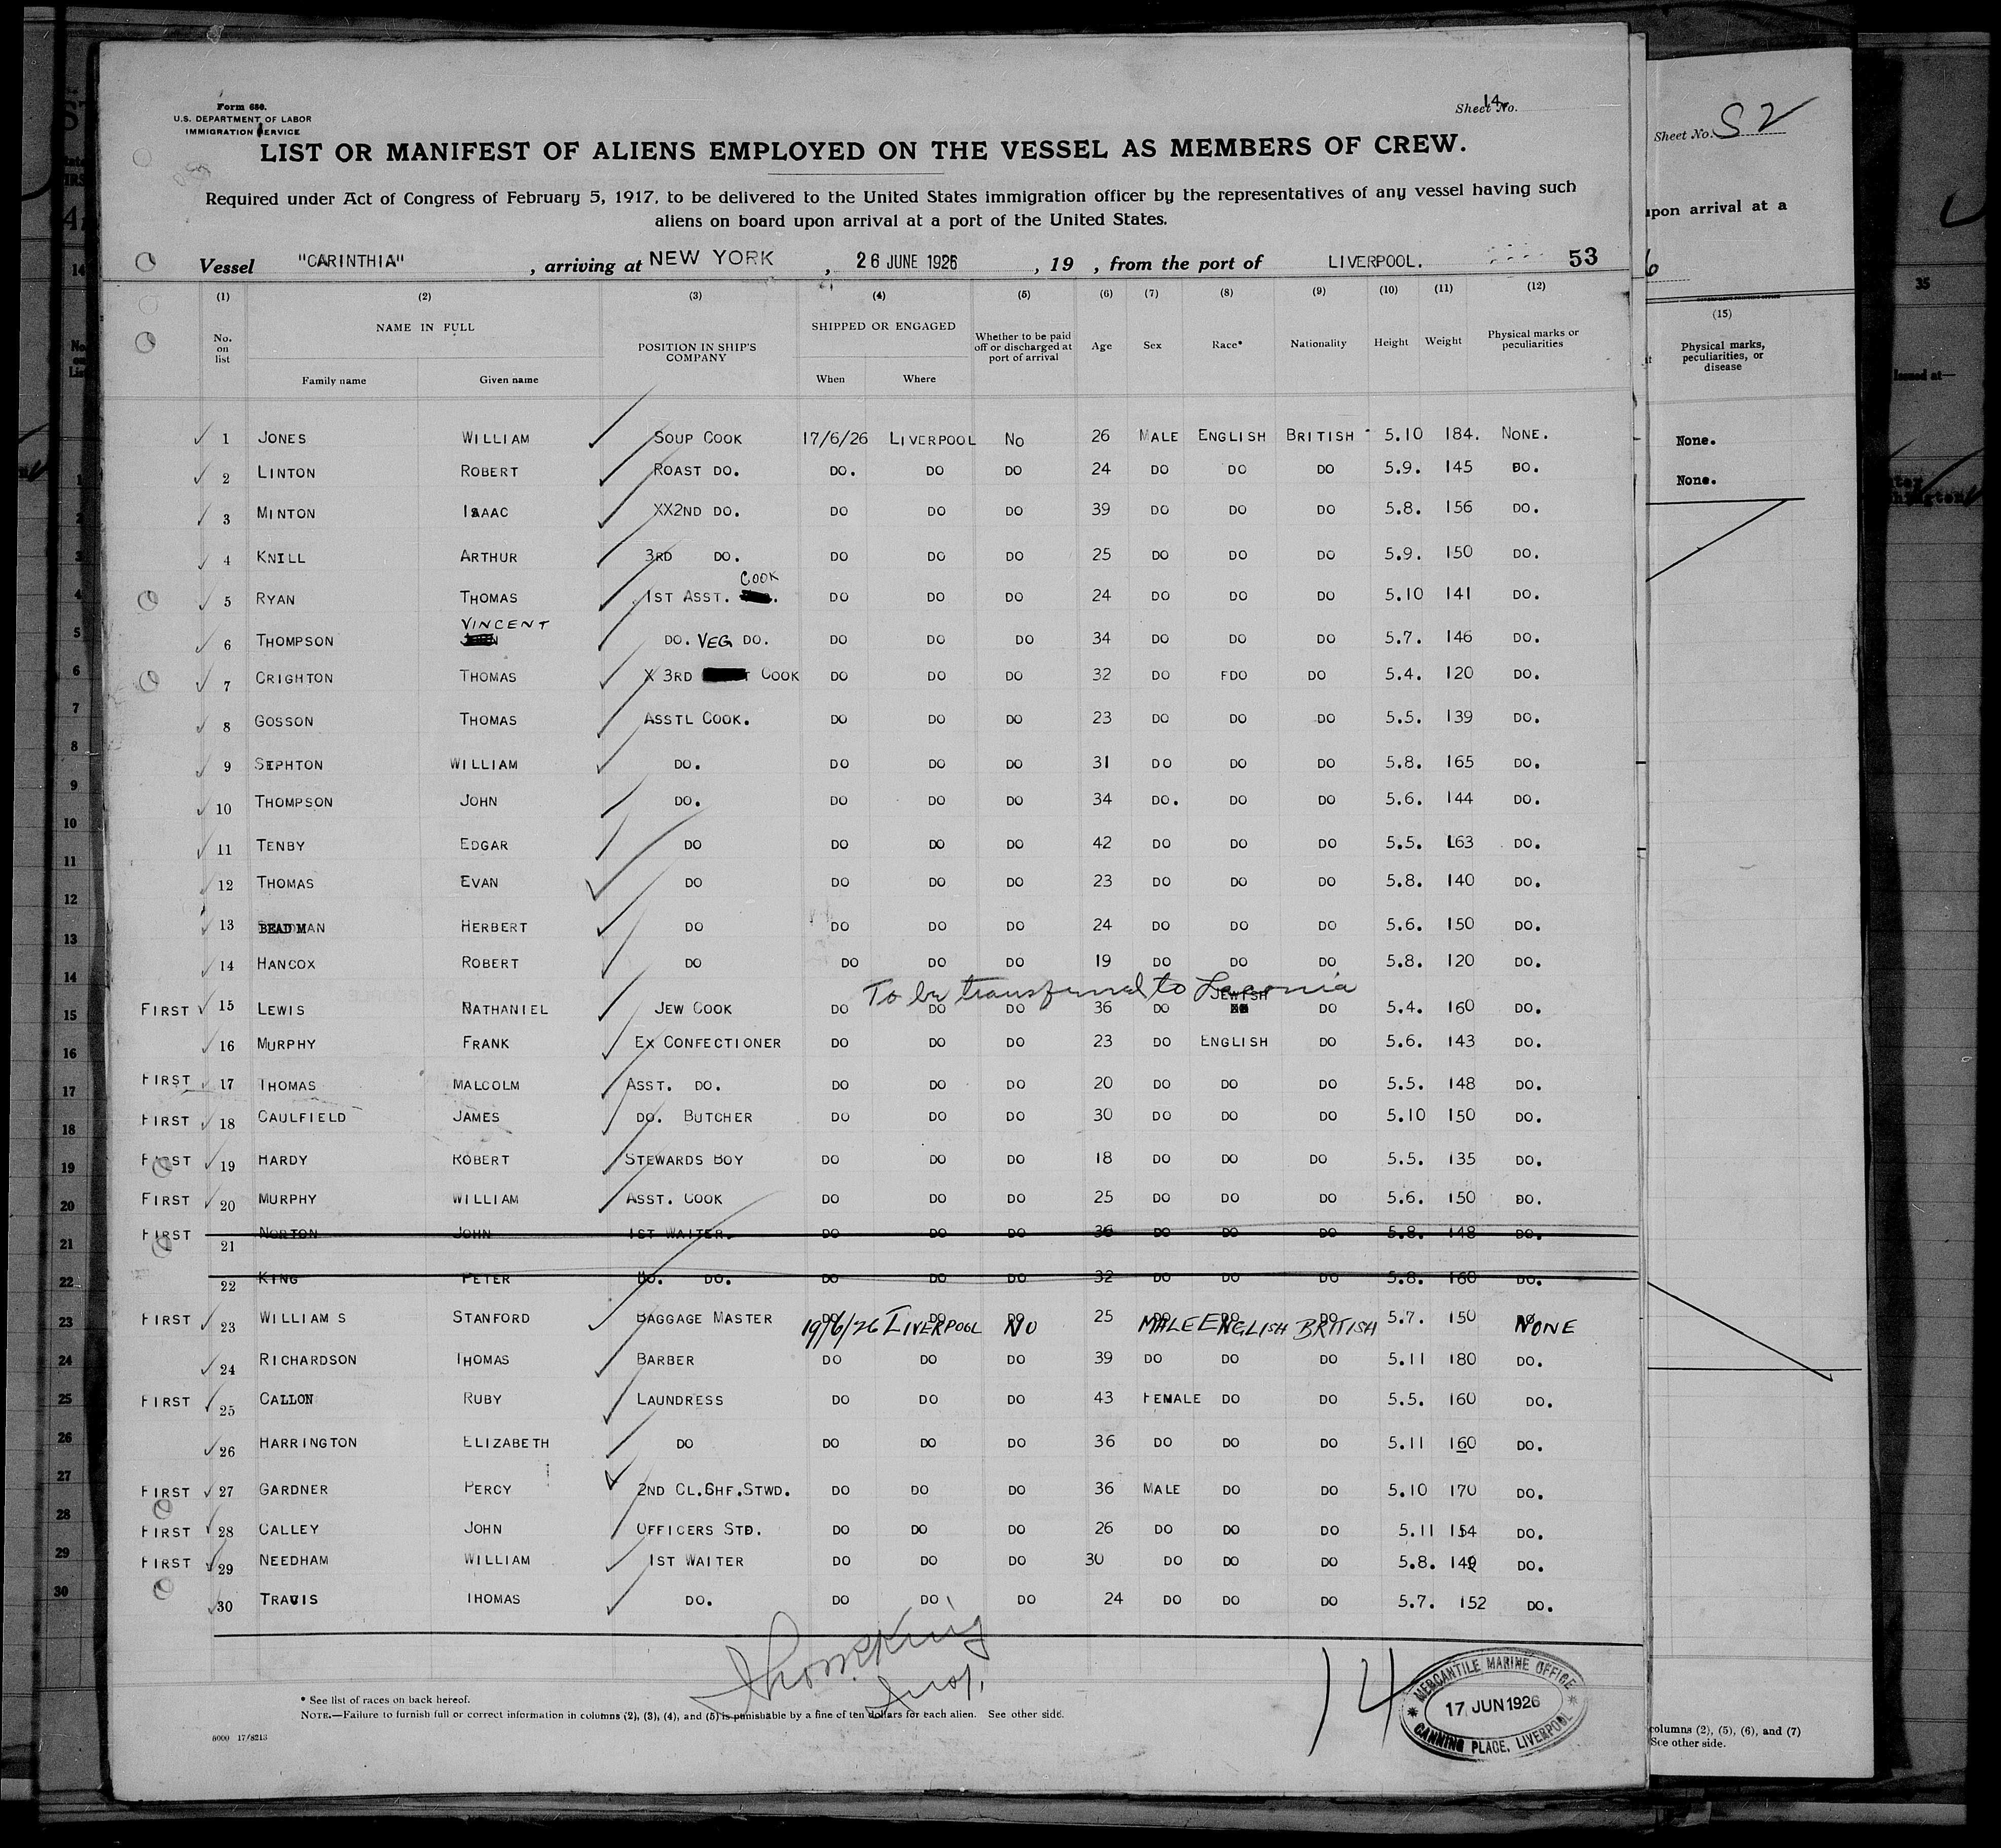 Form 680.
U.S. DEPARTMENT OF LABOR
IMMIGRATION SERVICE
Sheet No. 14
LIST OR MANIFEST OF ALIENS EMPLOYED ON THE VESSEL AS MEMBERS OF CREW.
Required under Act of Congress of February 5, 1917, to be delivered to the United States immigration officer by the representatives of any vessel having such
aliens on board upon arrival at a port of the United States.
Vessel "CARINTHIA", arriving at NEW YORK, 26 JUNE 1926, 19 , from the port of LIVERPOOL. 53
(1) (2) (3) (4) (5) (6) (7) (8) (9) (10) (11) (12)
No. on list NAME IN FULL Family name Given name POSITION IN SHIP'S COMPANY SHIPPED OR ENGAGED When Where Whether to be paid off or discharged at port of arrival Age Sex Race* Nationality Height Weight Physical marks or peculiarities
1 JONES WILLIAM SOUP COOK 17/6/26 LIVERPOOL NO 26 MALE ENGLISH BRITISH 5.10 184. NONE.
2 LINTON ROBERT ROAST DO. DO. DO DO 24 DO DO DO 5.9. 145 DO.
3 MINTON ISAAC XX2ND DO. DO DO DO 39 DO DO DO 5.8. 156 DO.
4 KNILL ARTHUR 3RD DO. DO DO DO 25 DO DO DO 5.9. 150 DO.
5 RYAN THOMAS 1ST ASST. COOK DO DO DO 24 DO DO DO 5.10 141 DO.
6 THOMPSON VINCENT DO. VEG DO. DO DO DO 34 DO DO DO 5.7. 146 DO.
7 CRIGHTON THOMAS X 3RD COOK DO DO DO 32 DO FDO DO 5.4. 120 DO.
8 GOSSON THOMAS ASSTL COOK. DO DO DO 23 DO DO DO 5.5. 139 DO.
9 SEPHTON WILLIAM DO. DO DO DO 31 DO DO DO 5.8. 165 DO.
10 THOMPSON JOHN DO. DO DO DO 34 DO. DO DO 5.6. 144 DO.
11 TENBY EDGAR DO DO DO DO 42 DO DO DO 5.5. 163 DO.
12 THOMAS EVAN DO DO DO DO 23 DO DO DO 5.8. 140 DO.
13 BEADMAN HERBERT DO DO DO DO 24 DO DO DO 5.6. 150 DO.
14 HANCOX ROBERT DO DO DO DO 19 DO DO DO 5.8. 120 DO.
To be transferred to Laconia
FIRST 15 LEWIS NATHANIEL JEW COOK DO DO DO 36 DO JEWISH DO 5.4. 160 DO.
16 MURPHY FRANK EX CONFECTIONER DO DO DO 23 DO ENGLISH DO 5.6. 143 DO.
FIRST 17 THOMAS MALCOLM ASST. DO. DO DO DO 20 DO DO DO 5.5. 148 DO.
FIRST 18 CAULFIELD JAMES DO. BUTCHER DO DO DO 30 DO DO DO 5.10 150 DO.
FIRST 19 HARDY ROBERT STEWARDS BOY DO DO DO 18 DO DO DO 5.5. 135 DO.
FIRST 20 MURPHY WILLIAM ASST. COOK DO DO DO 25 DO DO DO 5.6. 150 DO.
FIRST 21 NORTON JOHN 1ST WAITER. DO DO DO 36 DO DO DO 5.8. 148 DO.
22 KING PETER DO. DO. DO DO DO 32 DO DO DO 5.8. 160 DO.
FIRST 23 WILLIAMS STANFORD BAGGAGE MASTER DO DO DO 25 DO DO DO 5.7. 150 DO
19/6/26 LIVERPOOL NO MALE ENGLISH BRITISH NONE
24 RICHARDSON THOMAS BARBER DO DO DO 39 DO DO DO 5.11 180 DO.
FIRST 25 CALLON RUBY LAUNDRESS DO DO DO 43 FEMALE DO DO 5.5. 160 DO.
26 HARRINGTON ELIZABETH DO DO DO DO 36 DO DO DO 5.11 160 DO.
FIRST 27 GARDNER PERCY 2ND CL.GHF.STWD. DO DO DO 36 MALE DO DO 5.10 170 DO.
FIRST 28 CALLEY JOHN OFFICERS STD. DO DO DO 26 DO DO DO 5.11 154 DO.
FIRST 29 NEEDHAM WILLIAM 1ST WAITER DO DO DO 30 DO DO DO 5.8. 149 DO.
30 TRAVIS THOMAS DO. DO DO DO 24 DO DO DO 5.7. 152 DO.
14
MERCANTILE MARINE OFFICE
17 JUN 1926
CANNING PLACE, LIVERPOOL
* See list of races on back hereof.
NOTE.—Failure to furnish full or correct information in columns (2), (3), (4), and (5) is punishable by a fine of ten dollars for each alien. See other side.
Sheet No. 52
upon arrival at a
(15)
Physical marks, peculiarities, or disease
None.
None.
columns (2), (5), (6), and (7)
See other side.
35
Issued at—